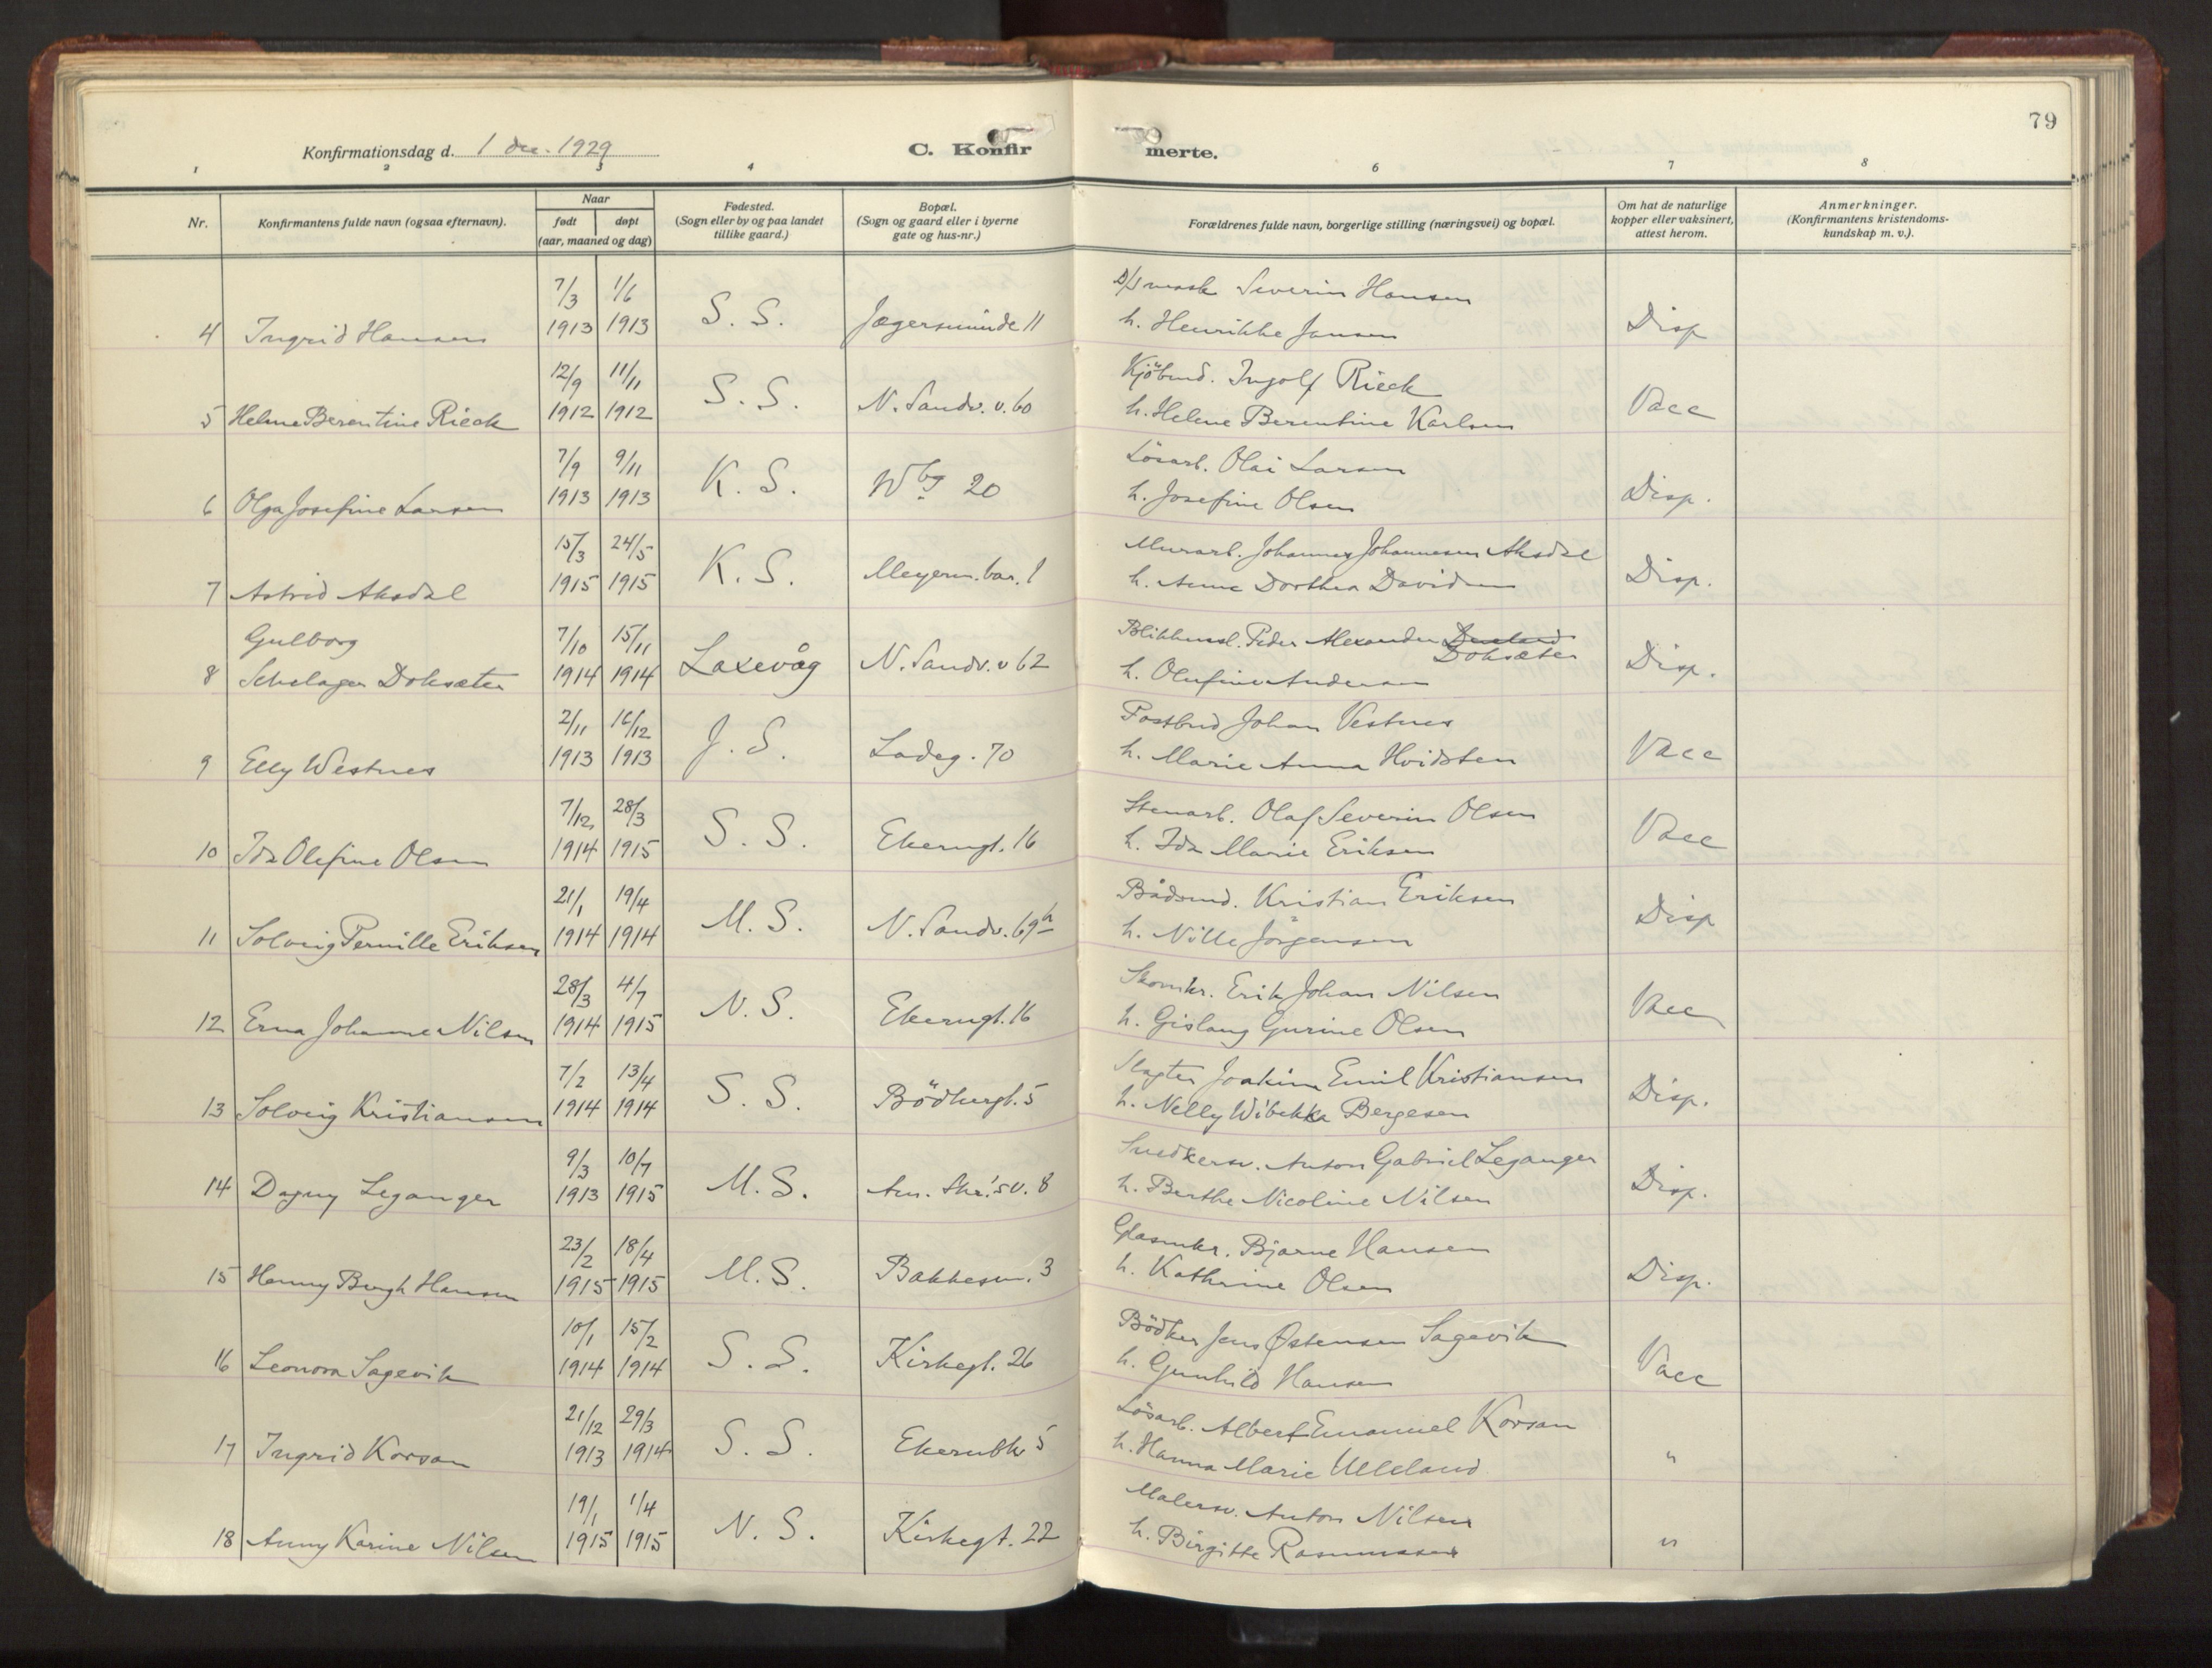 79
Konfirmationsdag d. 1 dec. 1929 C. Konfirmerte.
1 2 3 4 6 7 8
Nr. Konfirmantens fulde navn (ogsaa efternavn). Naar født døpt (aar, maaned og dag) Fødested. (Sogn eller by og paa landet tillike gaard.) Bopæl. (Sogn og gaard eller i byerne gate og hus-nr.) Forældrenes fulde navn, borgerlige stilling (næringsvei) og bopæl. Om hat de naturlige kopper eller vaksinert, attest herom. Anmerkninger. (Konfirmantens kristendoms-kundskap m. v.).
7/3 1/6 D/S mask Severin Hansen
4 Ingrid Hansen 1913 1913 S. S. Jægersminde 11 h. Henrikke Jansen Disp
12/9 11/11 Kjöbmd. Ingolf Rieck
5 Helene Berentine Rieck 1912 1912 S. S. N. Sandv. v. 60 h. Helene Berentine Karlsen Vacc
7/9 9/11 Lösarb. Olai Larsen
6 Olga Josefine Larsen 1913 1913 K. S. Wbg 20 h. Josefine Olsen Disp.
15/3 24/5 Murarb. Johannes Johannesen Aksdal
7 Astrid Aksdal 1915 1915 K. S. Meyerm. bar. 1 h. Anne Dorthea Davidsen Disp.
Gulborg 7/10 15/11 Blikkensl. Peder Alexander
Doksæter
8 Schelager Doksæter 1914 1914 Laxevåg N. Sandv. v 62 h. Olufine Andersen Disp.
2/11 16/12 Postbud Johan Vestnes
9 Elly Westnes 1913 1913 J. S. Ladeg. 70 h. Marie Anna Hvidsten Vacc
7/12 28/3 Stenarb. Olaf Severin Olsen
10 Ida Olefine Olsen 1914 1915 S. S. Ekerngt. 16 h. Ida Marie Eriksen Vacc
21/1 19/4 Bådsmd. Kristian Eriksen
11 Solveig Pernille Eriksen 1914 1914 M. S. N. Sandv. 69 h. Nille Jörgensen Disp
28/3 4/7 Skomkr. Erik Johan Nilsen
12 Erna Johanne Nilsen 1914 1915 N. S. Ekerngt. 16 h. Gislaug Gurine Olsen Vacc
7/2 13/4 Slagter Joakim Emil Kristiansen
13 Solveig Kristiansen 1914 1914 S. S. Bödkergt. 5 h. Nelly Wibekka Bergesen Disp.
9/3 10/7 Snedkersv. Anton Gabriel Leganger
14 Dagny Leganger 1913 1915 M. S. Am. Skr.'s v. 8 h. Berthe Nicoline Nilsen Disp.
23/2 18/4 Glasmkr. Bjarne Hansen
15 Henny Bergh Hansen 1915 1915 M. S. Bakkesm. 3 h. Kathrine Olsen Disp.
10/1 15/2 Bödker Jens Østensen Sagevik
16 Leonora Sagevik 1914 1914 S. S. Kirkegt. 26 h. Gunhild Hansen Vacc
21/12 29/3 Lösarb. Albert Emanuel Korsan
17 Ingrid Korsan 1913 1914 S. S. Ekernbk 5 h. Hanna Marie Ulleland "
19/1 1/4 Malersv. Anton Nilsen
18 Anny Karine Nilsen 1915 1915 N. S. Kirkegt. 22 h. Birgitte Rasmussen "